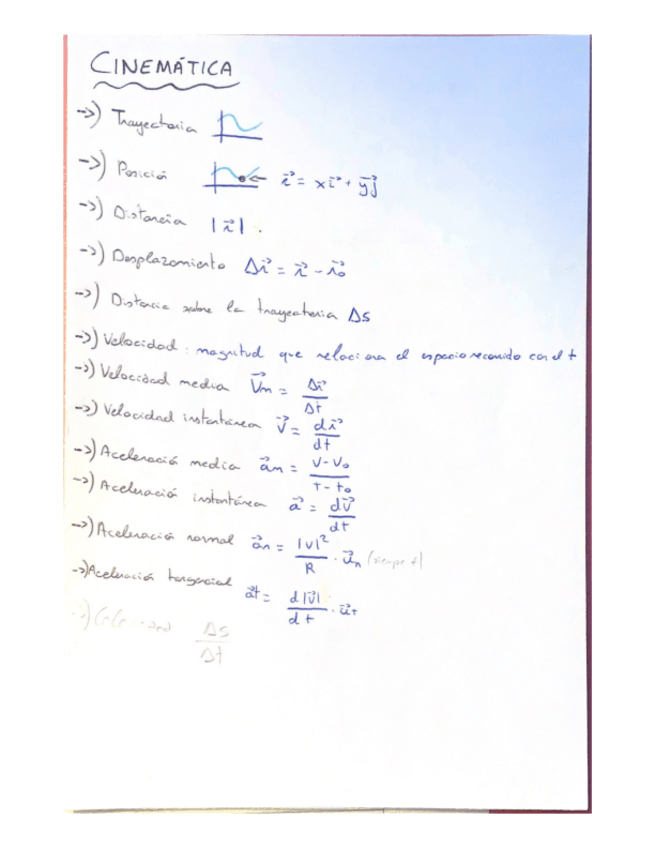 CINEMÁTICA
->) Trayectoria
->) Posición r⃗ = x i⃗ + y j⃗
->) Distancia |r⃗|.
->) Desplazamiento Δr⃗ = r⃗ - r⃗₀
->) Distancia sobre la trayectoria Δs
->) Velocidad: magnitud que relaciona el espacio recorrido con el t
->) Velocidad media V⃗m = Δr⃗/Δt
->) Velocidad instantánea V⃗ = dr⃗/dt
->) Aceleración media a⃗m = V-V₀/t-t₀
->) Aceleración instantánea a⃗ = dv⃗/dt
->) Aceleración normal a⃗n = |v|²/R · u⃗n (siempre +)
->) Aceleración tangencial a⃗t = d|v⃗|/dt · u⃗t
->) Celeridad Δs/Δt